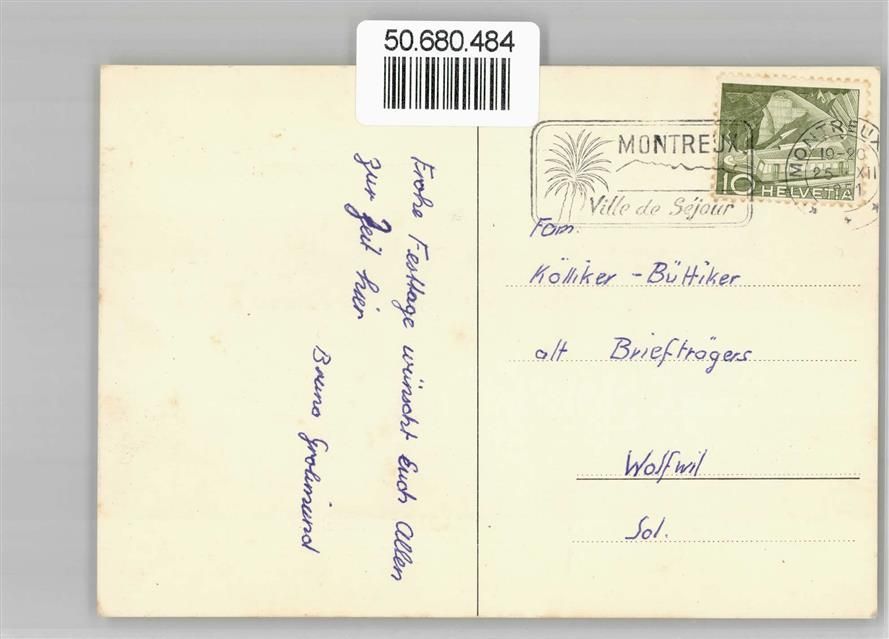 50.680.484
MONTREUX
Ville de Séjour
MONTREUX
10-20
25 XII
1951
10 HELVETIA
Frohe Festtage wünscht Euch Allen
zur Zeit hier
Bruno Grolimund
Fam.
Kölliker - Büttiker
alt Briefträgers
Wolfwil
Sol.